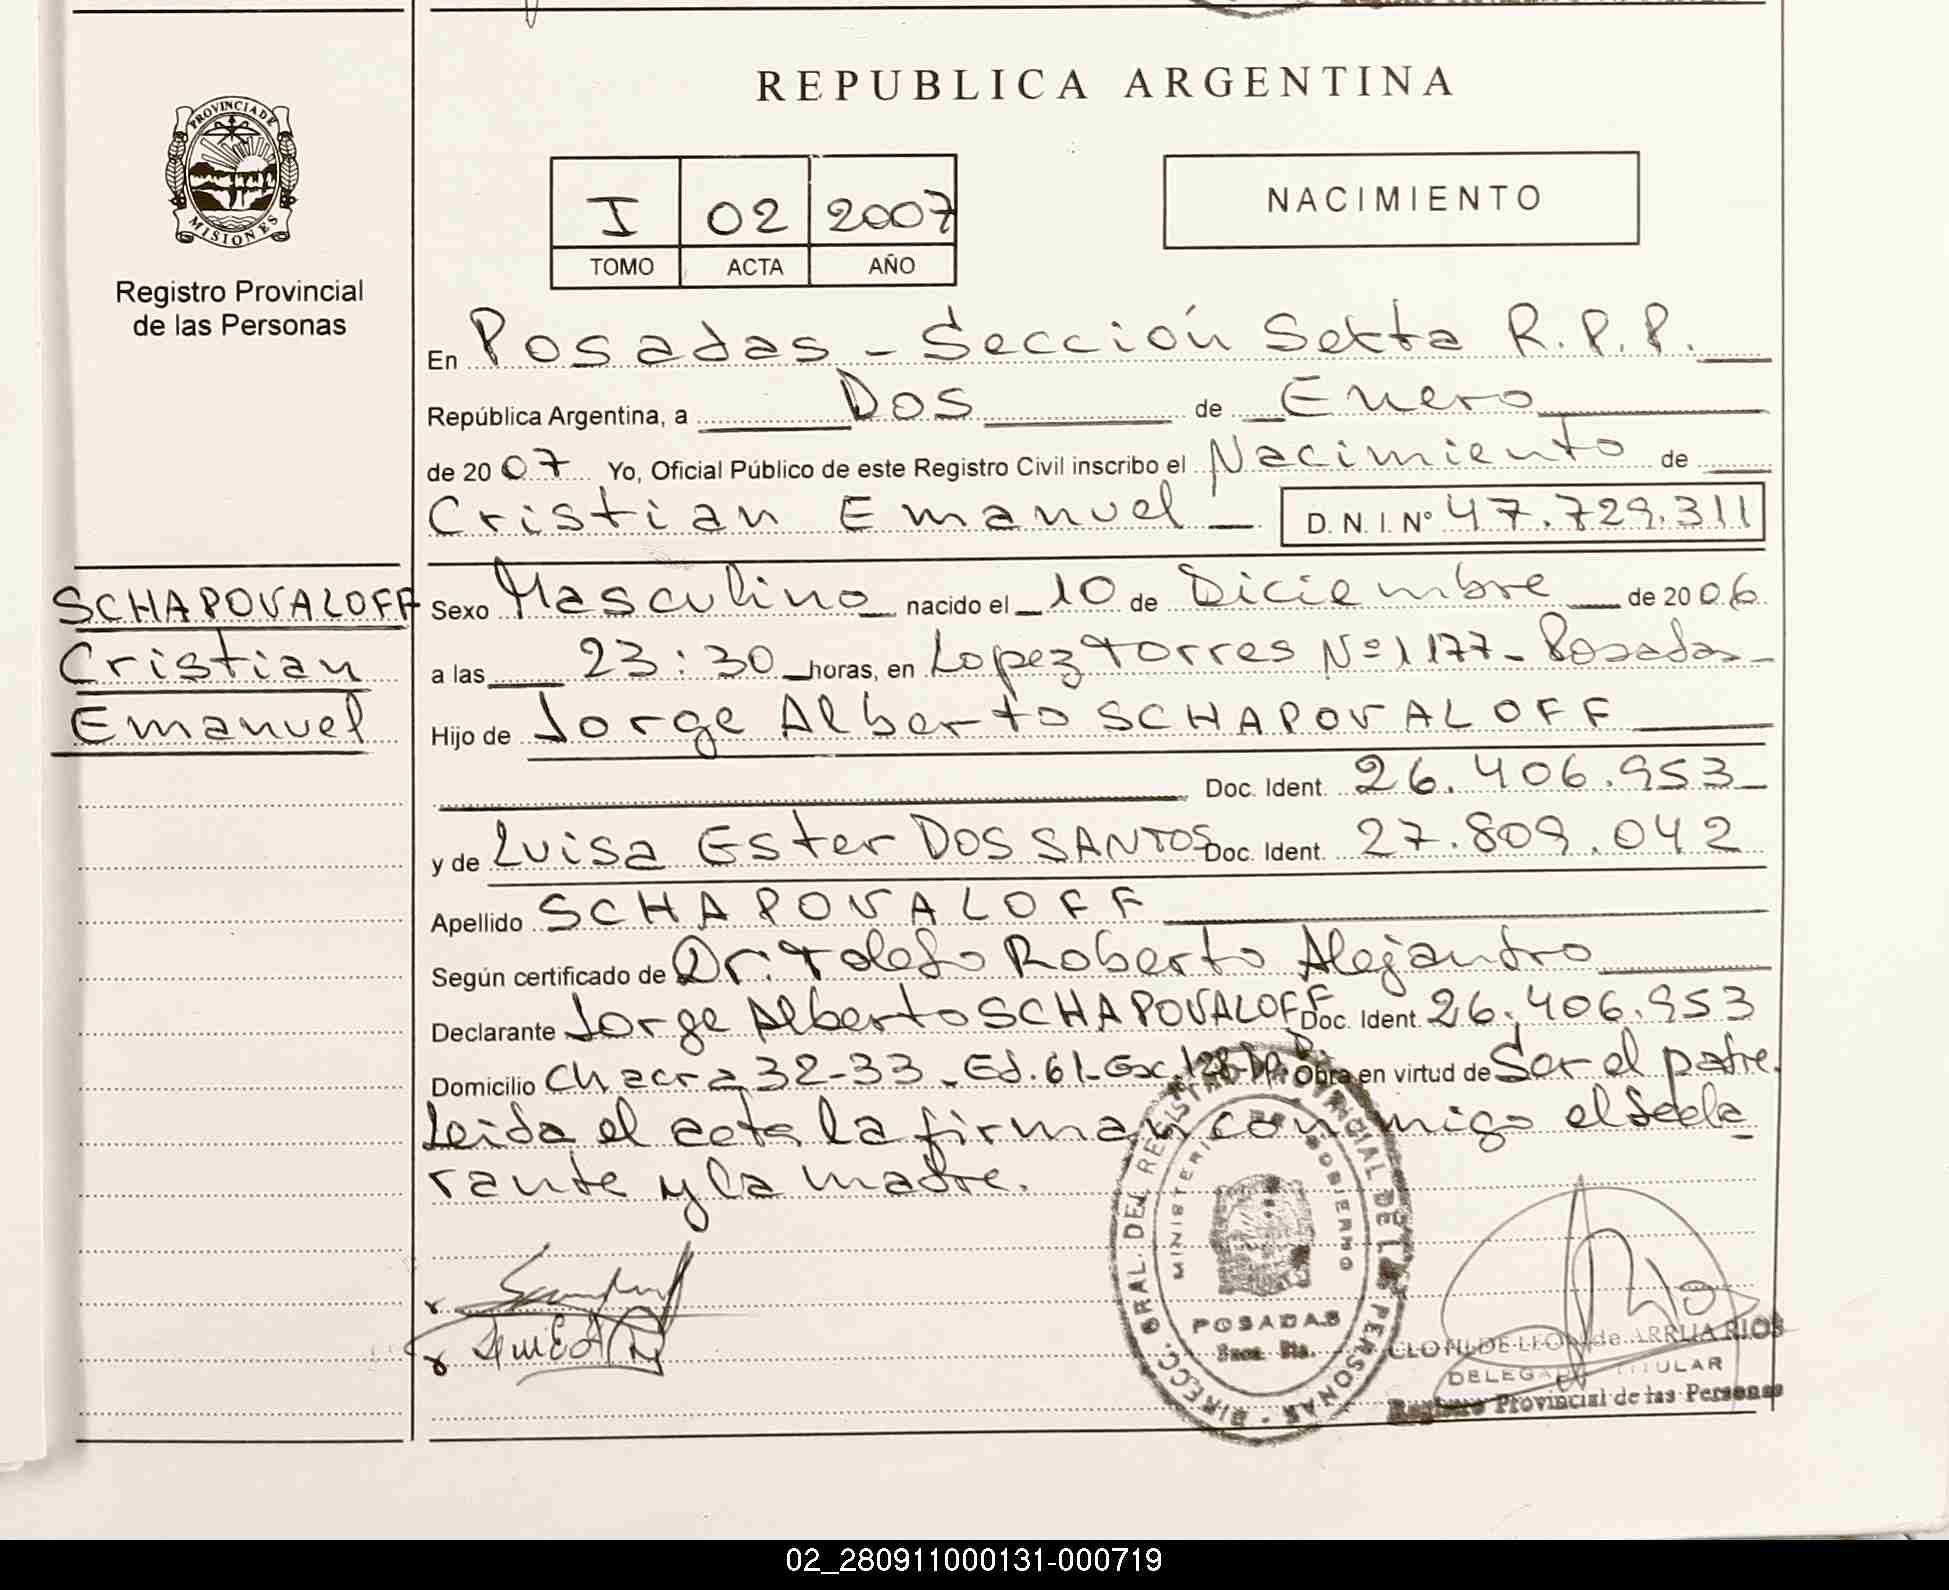 PROVINCIA DE
MISIONES
Registro Provincial
de las Personas
SCHAPOVALOFF
Cristian
Emanuel
REPUBLICA ARGENTINA
I 02 2007
TOMO ACTA AÑO
NACIMIENTO
En Posadas - Sección Sexta R.P.P.
República Argentina, a Dos de Enero
de 2007 Yo, Oficial Público de este Registro Civil inscribo el Nacimiento de
Cristian Emanuel D. N. I. Nº 47.729.311
Sexo Masculino nacido el 10 de Diciembre de 2006
a las 23:30 horas, en Lopez Torres Nº 1177 - Posadas -
Hijo de Jorge Alberto SCHAPOVALOFF
Doc. Ident. 26.406.953
y de Luisa Ester DOS SANTOS Doc. Ident. 27.809.042
Apellido SCHAPOVALOFF
Según certificado de Dr. Toledo Roberto Alejandro
Declarante Jorge Alberto SCHAPOVALOFF Doc. Ident. 26.406.953
Domicilio Chacra 32-33 - Ed. 61 - Esc. 128 - Dp. D Obra en virtud de Ser el padre.
Leida el acta la firman conmigo el decla
rante y la madre.
DIRECC. GRAL. DEL REGISTRO PROVINCIAL DE LAS PERSONAS
MINISTERIO DE GOBIERNO
POSADAS
Secc. 6ta.
CLOTILDE LEON de ARRUA RIOS
DELEGADA TITULAR
Registro Provincial de las Personas
02_280911000131-000719